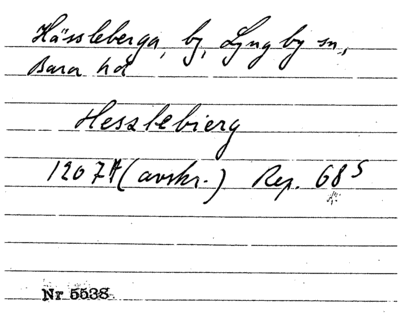 Hässleberga, by, Lyngby sn,
Bara hd
Heszlebierg
1207 A (avskr.) Rep. 68 S
Nr 5538